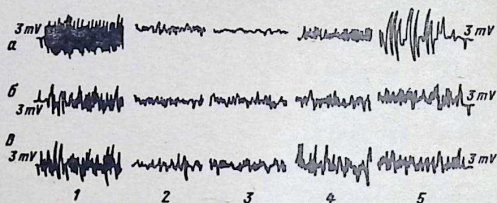 3 mV 3 mV
а
б
3 mV 3 mV
в
3 mV 3 mV
1 2 3 4 5